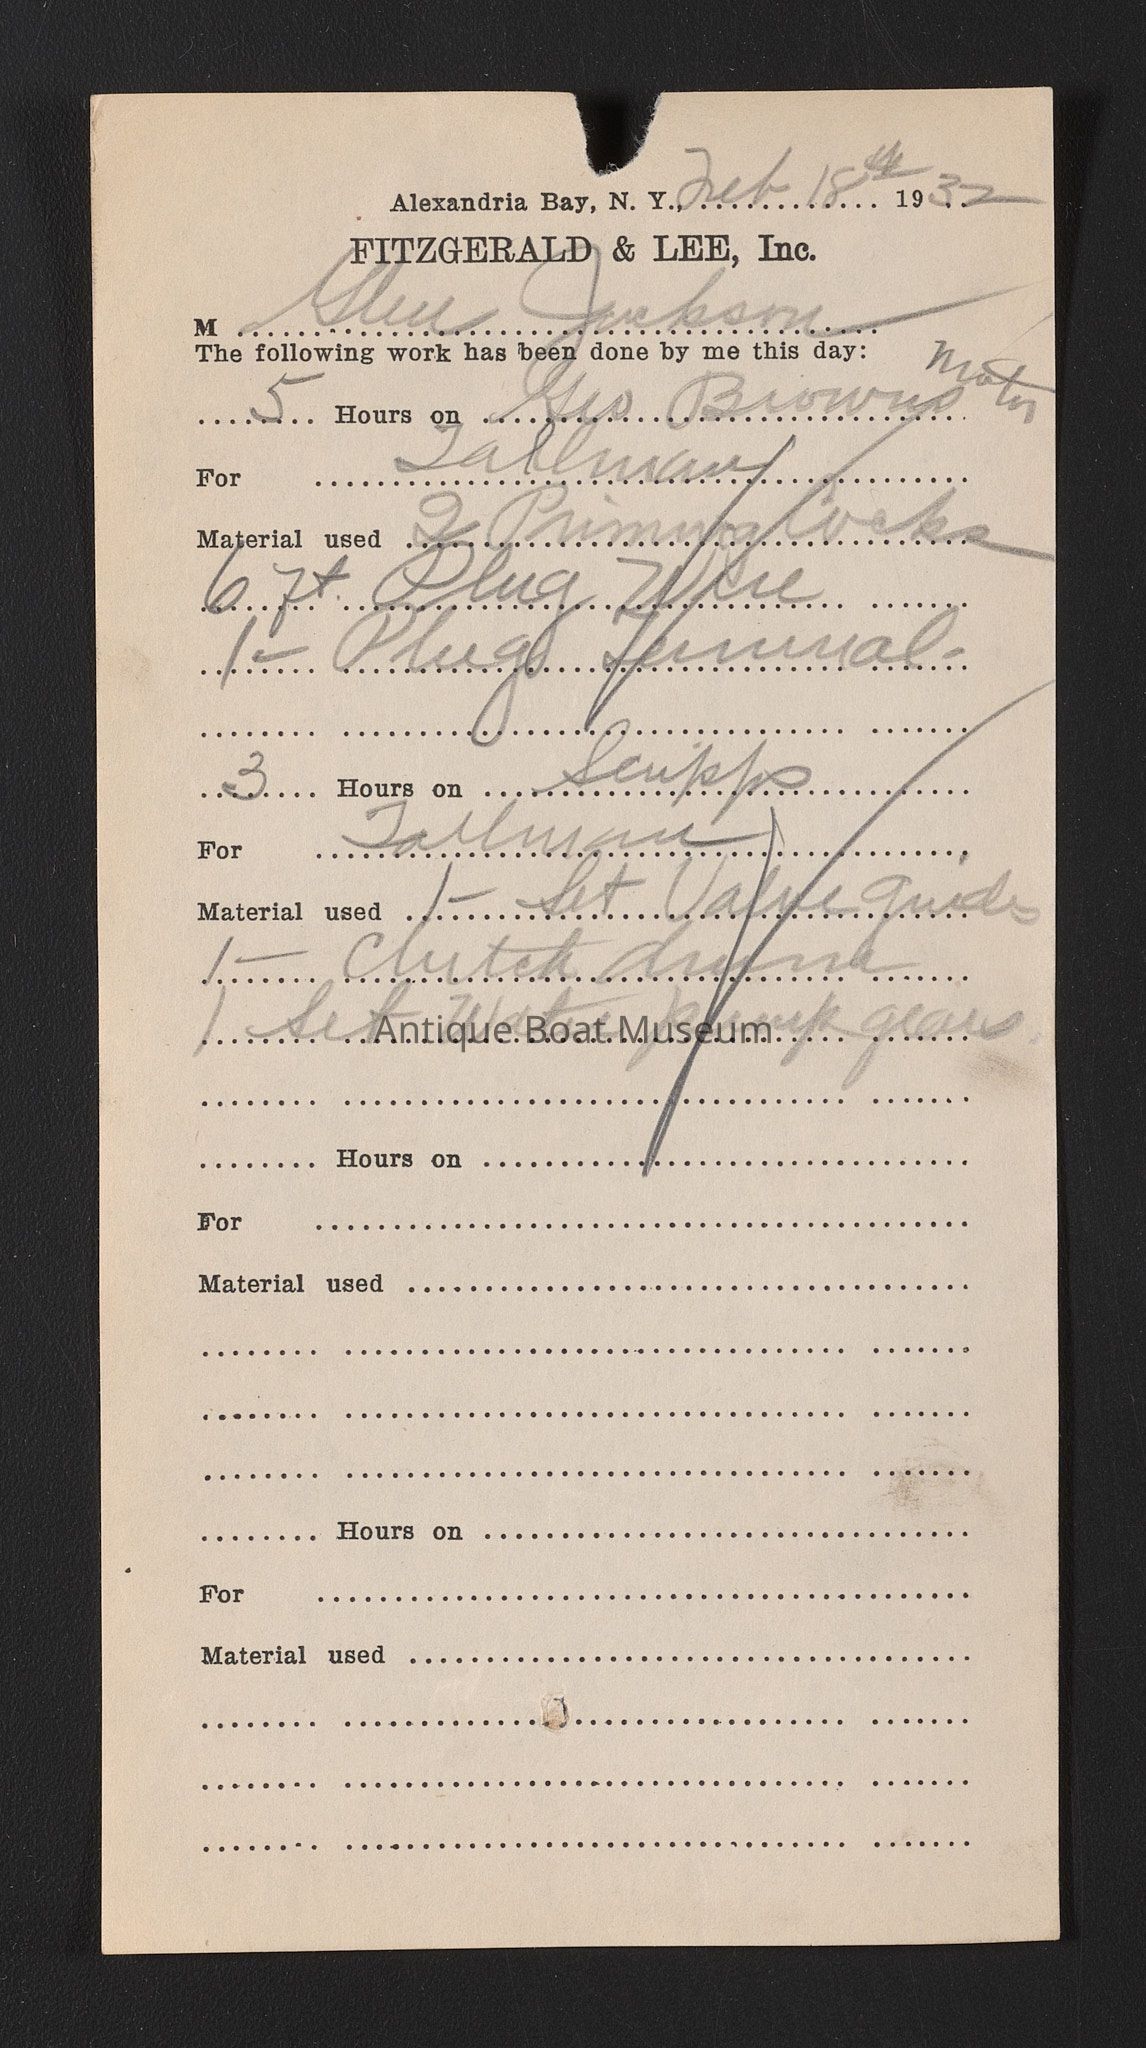 Alexandria Bay, N. Y., Feb 18th 1932
FITZGERALD & LEE, Inc.
M Glen Jackson
The following work has been done by me this day:
5 Hours on Geo Browns Motor
For Tallman
Material used 2 Priming Cocks
6 ft. Plug Wire
1 - Plug Terminal -
3 Hours on Scripps
For Tallman
Material used 1 - Set Valve guides
1 - Clutch drum
1 Set Water pump gears
Antique Boat Museum
Hours on
For
Material used
Hours on
For
Material used